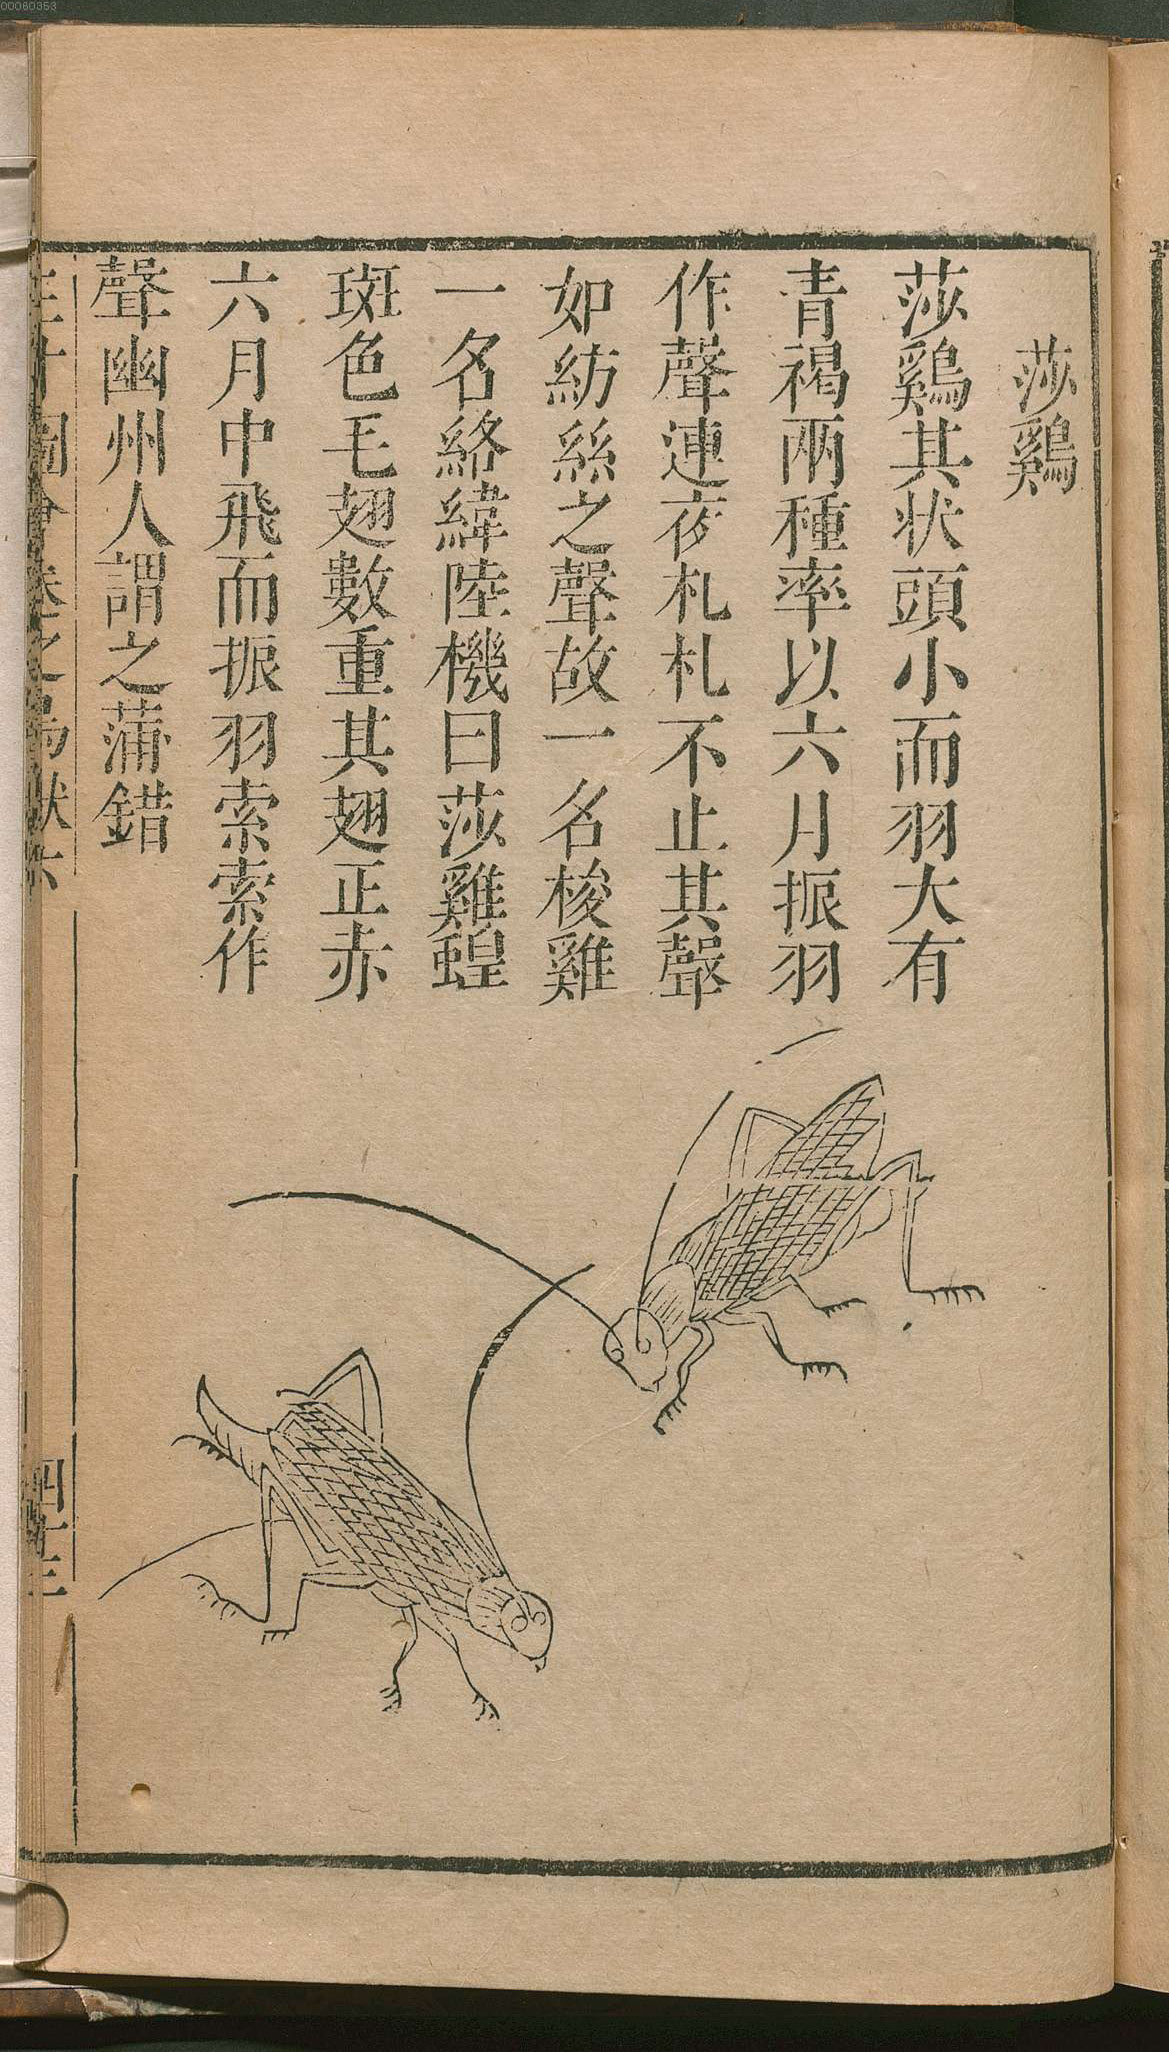 00060353
莎鷄
莎鷄其状頭小而羽大有
青褐兩種率以六月振羽
作聲連夜札札不止其聲
如紡絲之聲故一名梭雞
一名絡緯陸機曰莎雞蝗
斑色毛翅數重其翅正赤
六月中飛而振羽索索作
聲幽州人謂之蒲錯
三才圖會卷之鳥獸六
四十三